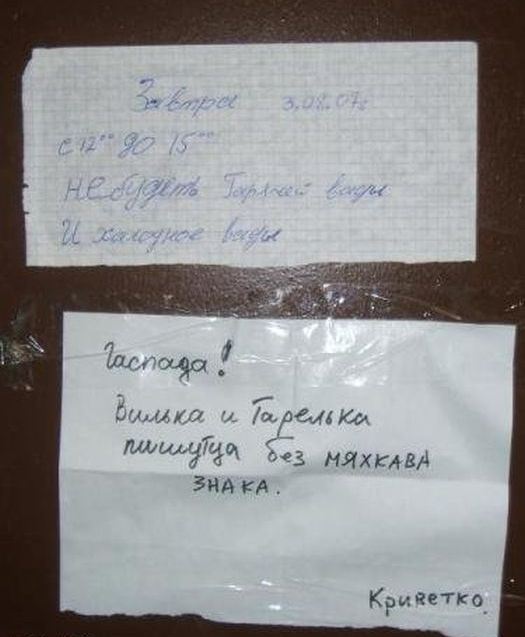 Завтра 3.08.07г
с 12°° до 15°°
не будеть Гарячей вады
И халодное вады
Гаспада!
Вилька и Тарелька
пишутца без мяхкава
знака.
Криветко